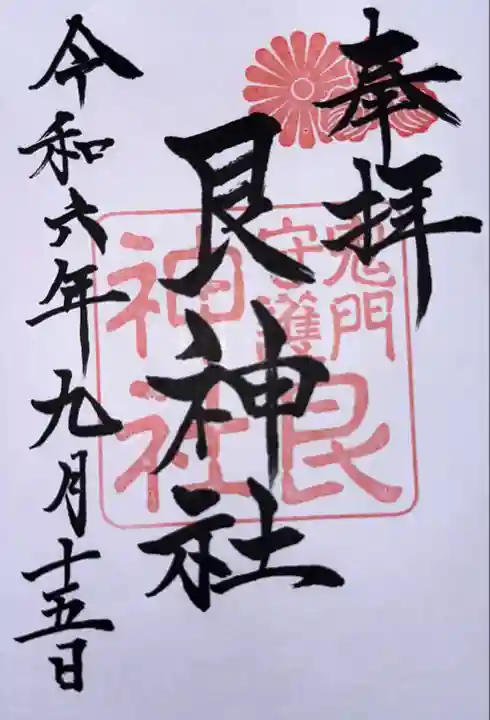 奉拝
艮神社
令和六年九月十五日
鬼門
守護
艮
神社